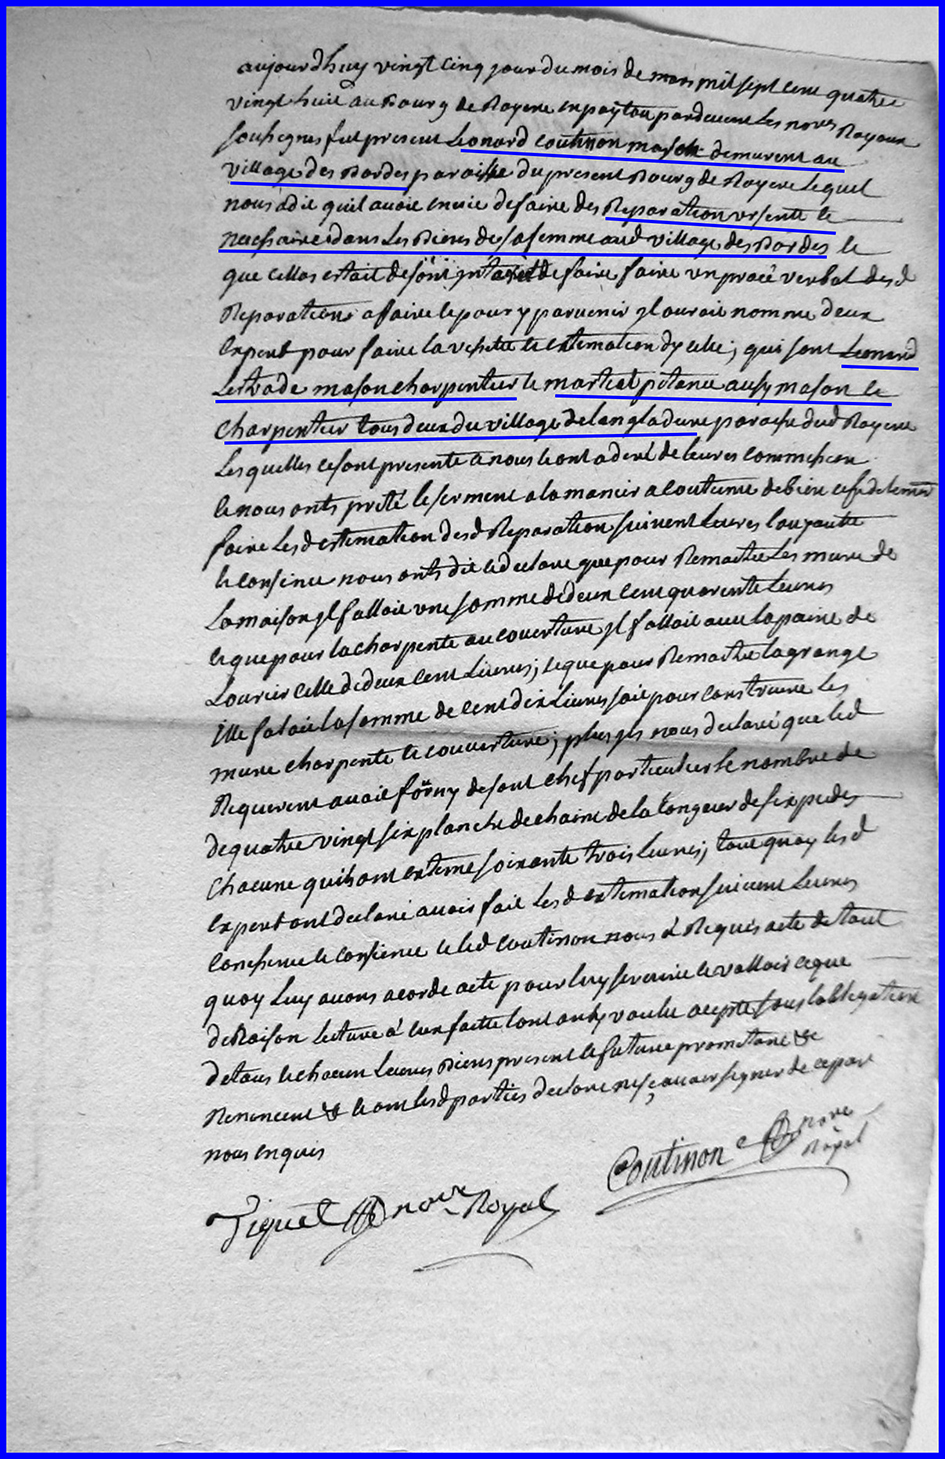 aujourdhuy vingt cinq jour du mois de mars mil sept cent quatre
vingt huit au Bourg de Royere en poytou pardevent Les nores Royaux
sousignes fut present Leonard coutinon mason demurent au
village des Bordes paroisse du present Bourg de Royere Lequel
nous a die quil avoit envie de faire des Reparation urgente le
necessaire dans Les Biens de sa femme aud village des Bordes le
que cellas estait de son interest de faire faire un procé verbal desd
Reparations affaire le pour y parvenir jl auroit nomme deux
Expert pour faire la visitte le estimation dycelle ; qui sont Leonard
Lestrade mason charpentier le martial pitance ausy mason le
charpentier tous deux du village de langladure paroisse dud Royere
Lesquelles ce sont presente a nous le ont adéré de leures commission
le nous onts preté le serment a la manier acoutume de bien le fidelement
faire Lesd estimation desd Reparation suivent Leures loyauté
le consince nous onts dit le declare que pour Remastre Les mure de
La maison jl falloit une somme de deux cent quarente Livres
le que pour la charpente au couverture jl falloit avec la paine de
Louvrier celle de deux cent Livres ; le que pour Remastre la grange
ille faloit la somme de cent dix Livres soit pour construire les
mure charpente le couverture ; plus jls nous declaré que led
Requerent avait forny de sont chef particulier le nombre de
de quatre vingt six planche de chaine de la longeur de six pieds
chacune quils ont extime soixante trois Livres ; tout quoy lesd
Expert ont declaré avoir fait Lesd extimation suivent Leures
conscience le led coutinon nous á Requis acte de tout
quoy Luy avons acorde acte pour luy servire le valloir ce que
de Raison Lecture á eux faitte lont ainsy voulu acepté sous lobligation
de tous le chacun Leures Biens present le future prometant &c
Renoncent & le ont lesd parties declare ne sçavoir signer de ce par
nous enquis
Coutinon nore
Royal
Tiquet nore Royal